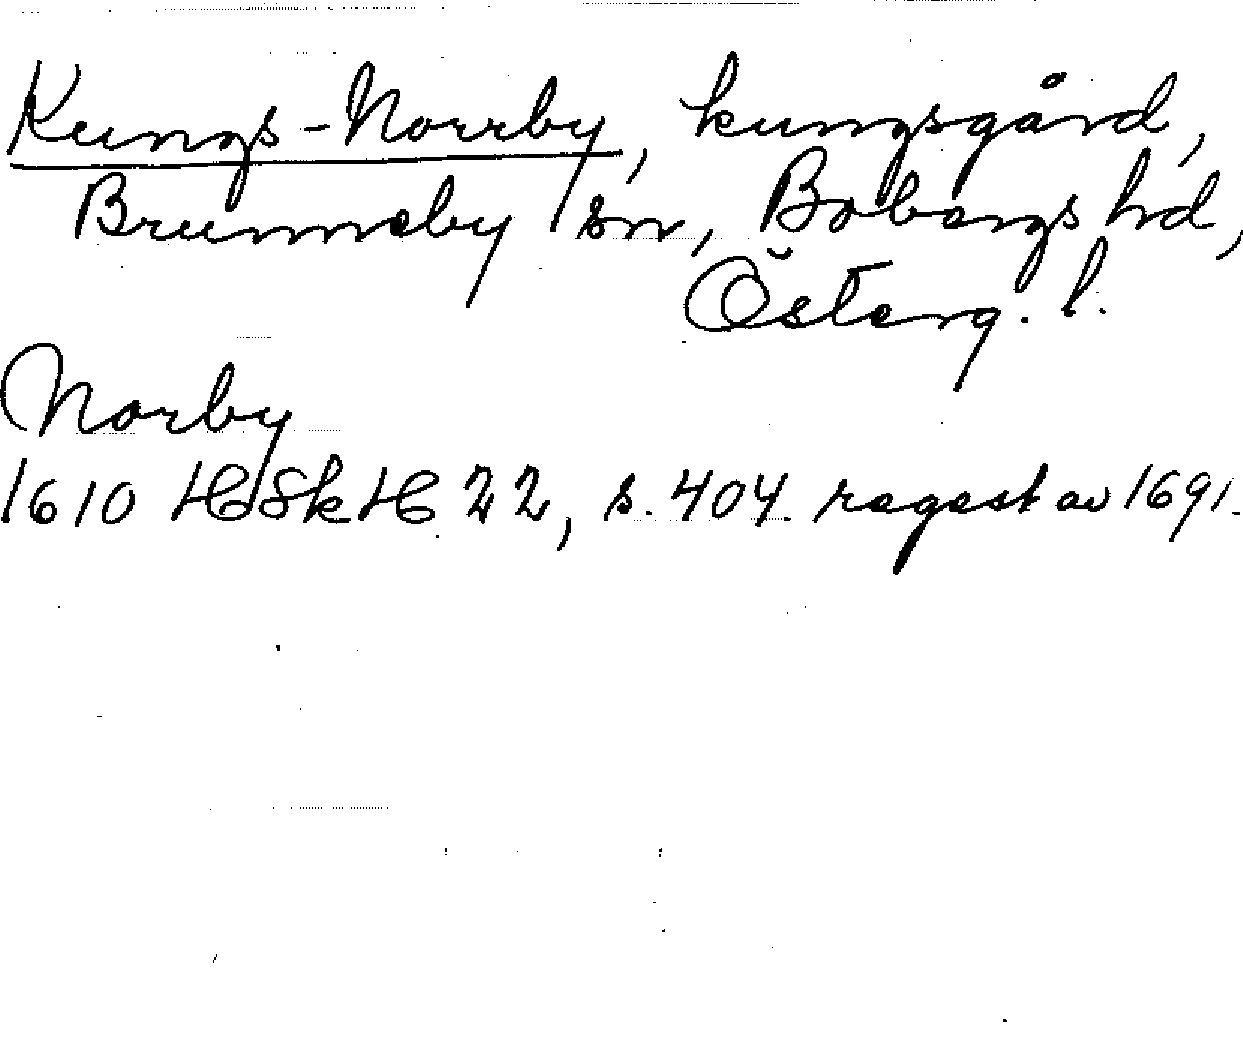 Kungs-Norrby, kungsgård,
Brunneby sn, Bobergs hd,
Österg. l.
Norby
1610 HSkH 22, s. 404. regest av 1691.